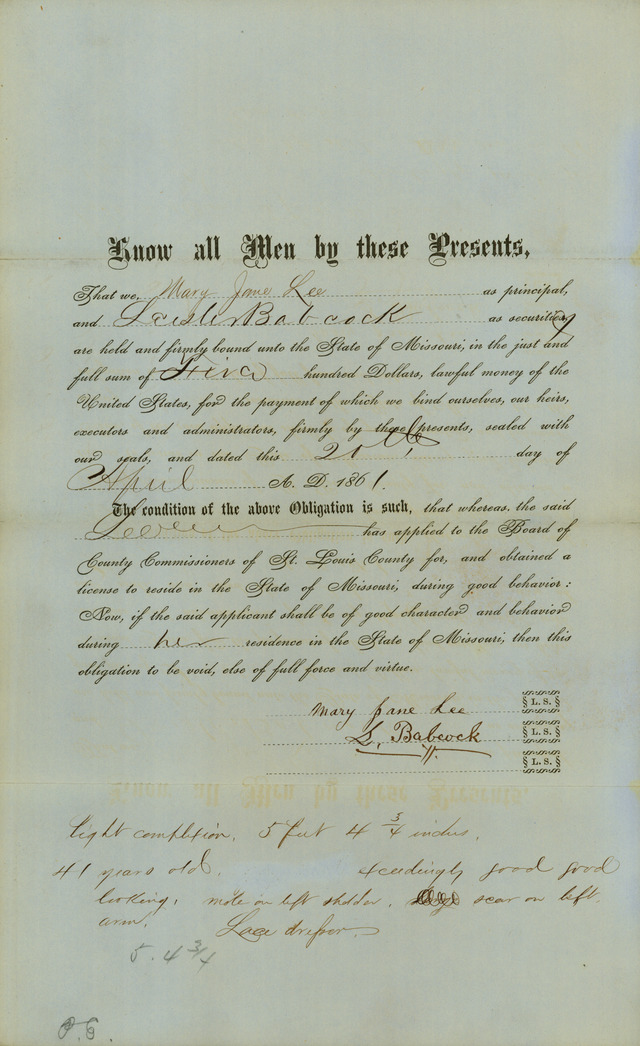 Know all Men by these Presents,
That we, Mary Jane Lee as principal,
and Babcock as securities,
are held and firmly bound unto the State of Missouri, in the just and
full sum of Five hundred Dollars, lawful money of the
United States, for the payment of which we bind ourselves, our heirs,
executors and administrators, firmly by these presents, sealed with
our seals, and dated this day of
April A. D. 1861.
The condition of the above Obligation is such, that whereas, the said
has applied to the Board of
County Commissioners of St. Louis County for, and obtained a
license to reside in the State of Missouri, during good behavior:
Now, if the said applicant shall be of good character and behavior
during her residence in the State of Missouri, then this
obligation to be void, else of full force and virtue.
Mary Jane Lee L. S.
L. Babcock L. S.
L. S.
light complexion. 5 feet 4 3/4 inches.
41 years old. good good
looking. mole on left scar on left.
arm. Lace dresser
5. 4 3/4